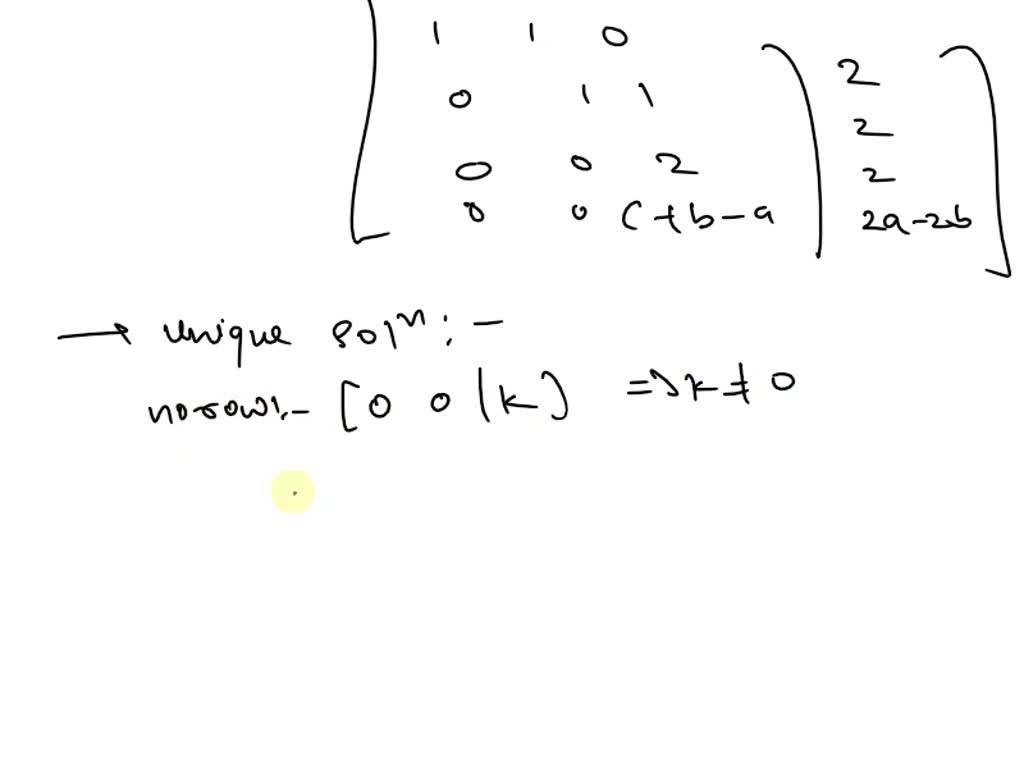 1 1 0
0 1 1 2
0 0 2 2
2
0 0 c+b-a 2a-2b
→ unique soln:-
no rows:- [0 0 | k] => k ≠ 0